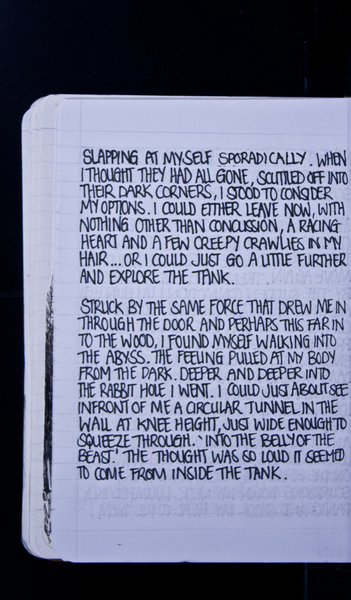 SLAPPING AT MYSELF SPORADICALLY. WHEN
I THOUGHT THEY HAD ALL GONE, SCUTTLED OFF INTO
THEIR DARK CORNERS, I STOOD TO CONSIDER
MY OPTIONS. I COULD EITHER LEAVE NOW, WITH
NOTHING OTHER THAN CONCUSSION, A RACING
HEART AND A FEW CREEPY CRAWLIES IN MY
HAIR... OR I COULD JUST GO A LITTLE FURTHER
AND EXPLORE THE TANK.
STRUCK BY THE SAME FORCE THAT DREW ME IN
THROUGH THE DOOR AND PERHAPS THIS FAR IN
TO THE WOOD, I FOUND MYSELF WALKING INTO
THE ABYSS. THE FEELING PULLED AT MY BODY
FROM THE DARK. DEEPER AND DEEPER INTO
THE RABBIT HOLE I WENT. I COULD JUST ABOUT SEE
INFRONT OF ME A CIRCULAR TUNNEL IN THE
WALL AT KNEE HEIGHT, JUST WIDE ENOUGH TO
SQUEEZE THROUGH. 'INTO THE BELLY OF THE
BEAST.' THE THOUGHT WAS SO LOUD IT SEEMED
TO COME FROM INSIDE THE TANK.